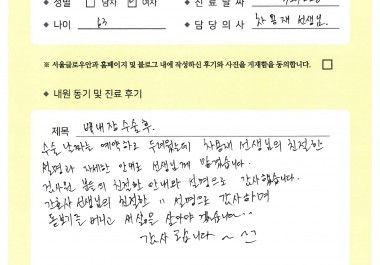 ◆ 성별 □ 남자 ☑ 여자 ◆ 진료날짜
◆ 나이 63 ◆ 담당의사 차용재 선생님.
※ 서울글로우안과 홈페이지 및 블로그 내에 작성하신 후기와 사진을 게재함을 동의합니다. □
◆ 내원 동기 및 진료 후기
제목 백내장 수술후.
수술 날짜는 예약하고 두려웠는데 차용재 선생님의 친절한
설명과 자세한 안내로 선생님께 맡겼습니다.
검사원 분들의 친절한 안내와 설명으로 감사했습니다.
간호사 선생님의 친절한 〃 설명으로 감사하며
돋보기를 버리고 새 삶을 살아야 겠습니다..
감사합니다 ~ ^^